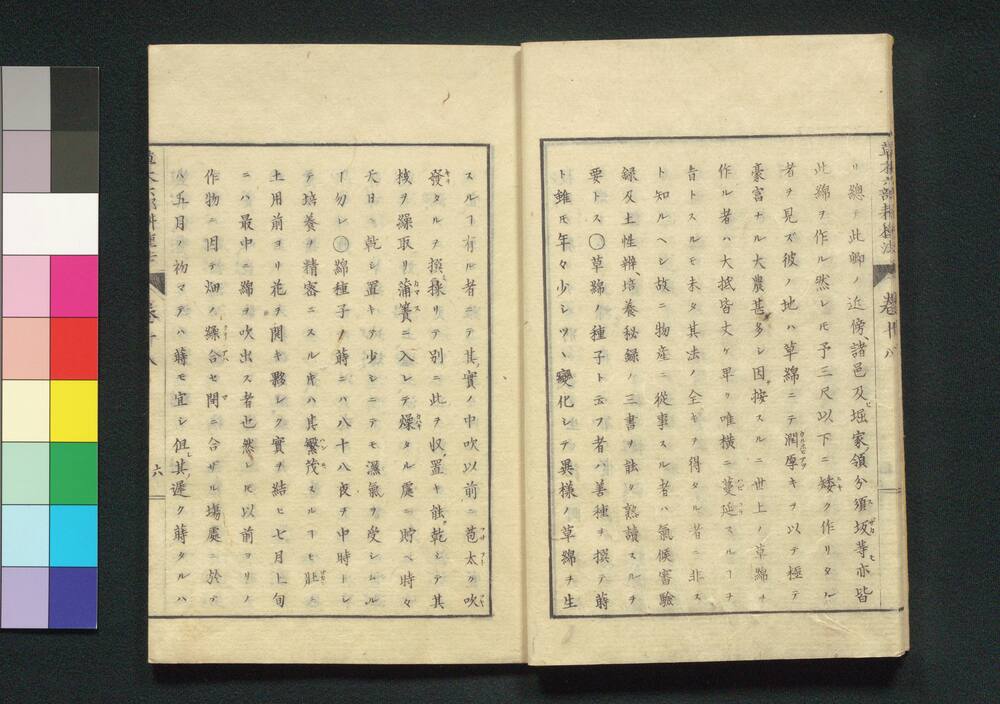 草木六部耕種法
卷十八
リ總テ此鄉ノ近傍、諸邑及ヒ堀家領分須坂等亦皆
此綿ヲ作ル然レㇳモ予三尺以下ニ矮ク作リタル
者ヲ見ズ彼ノ地ハ草綿ニテ潤厚キヲ以テ極テ
豪富ナル大農甚多シ因テ按スルニ世上ノ草綿ヲ
作ル者ハ大抵皆丈ケ卑ク唯橫ニ蔓延スルヿヲ
旨トスルモ未タ其法ノ全キヲ得タル者ニ非ス
ト知ルヘシ故ニ物産ニ從事スル者ハ氣候審驗
錄及土性辨、培養秘錄ノ三書ヲ能ク熟讀スルヲ
要トス〇草綿ノ種子ト云フ者ハ善種ヲ撰テ蒔
ト雖モ年々少シツヽ變化シテ異樣ノ草綿ヲ生
スルヿ有ル者ニテ其實ノ中吹以前ニ苞太ク吹
發タルヲ撰ミ採リテ別ニ此ヲ収置キ能乾シテ其
核ヲ繰取リ蒲簀ニ入レテ燥タル處ニ貯ベ時々
天日ニ乾シ置キテ少シニテモ濕氣ヲ受シムル
ヿ勿レ〇綿種子ノ蒔ニハ八十八夜ヲ中時トシ
テ培養ヲ精密ニスル片ハ其繁茂スルヿモ壯ニ
土用前ヨリ花ヲ開キ夥シク實ヲ結ヒ七月上旬
ニハ最中ニ綿ヲ吹出ス者也然レㇳモ以前ヨリノ
作物ニ因テ畑ノ繰合セ間ニ合ザル塲處ニ於テ
ハ五月ノ初マテハ蒔モ宜シ但シ其遲ク蒔タルハ
六